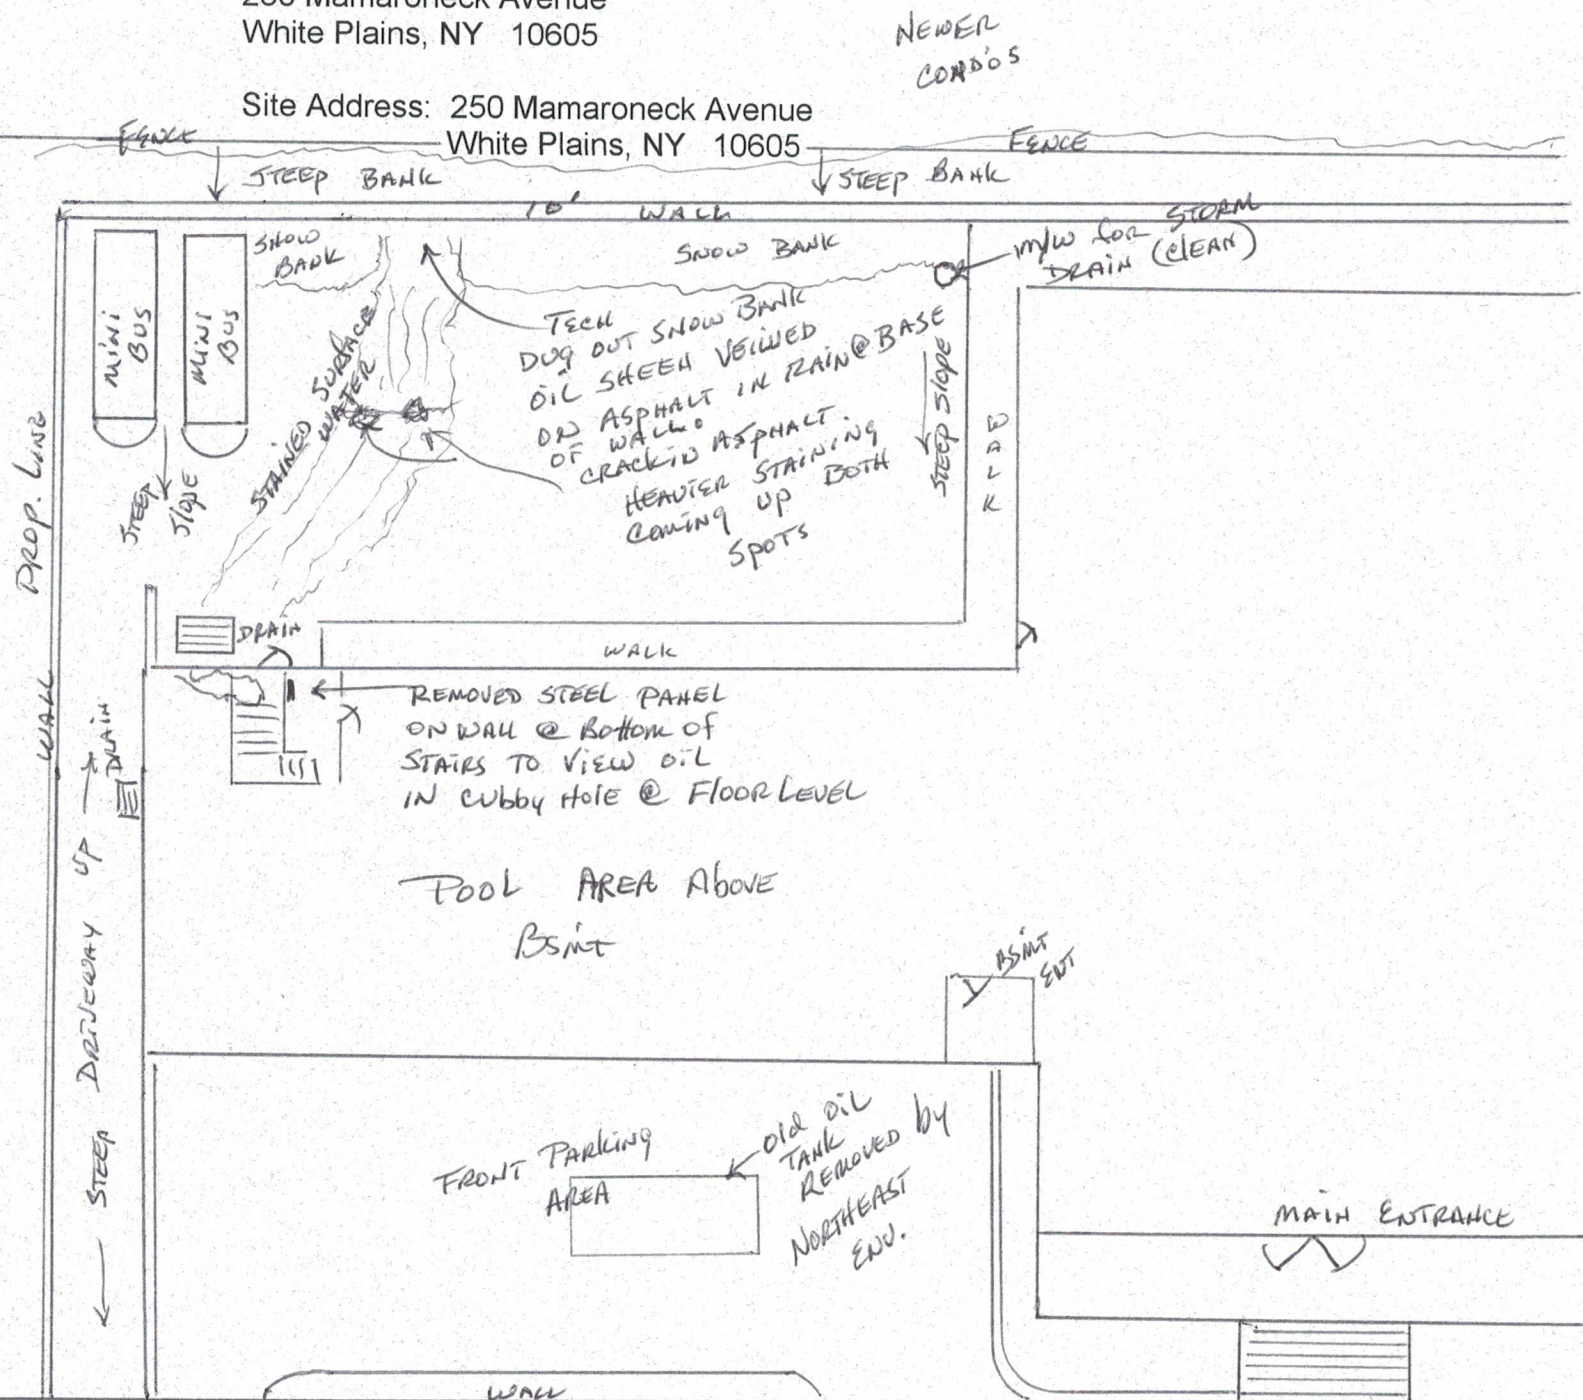 250 Mamaroneck Avenue
White Plains, NY 10605
NEWER
CONDO'S
Site Address: 250 Mamaroneck Avenue
White Plains, NY 10605
FENCE
FENCE
STEEP BANK
STEEP BANK
10' WALL
SNOW
BANK
SNOW BANK
M/W for STORM
DRAIN (CLEAN)
MINI
BUS
MINI
BUS
STAINED SURFACE
WATER
TECH
DUG OUT SNOW BANK
OIL SHEEN VEIWED
ON ASPHALT IN RAIN @ BASE
OF WALL.
CRACK IN ASPHALT.
HEAVIER STAINING
COMING UP BOTH
SPOTS
STEEP SLOPE
WALK
STEEP
SLOPE
PROP. LINE
WALL
DRAIN
WALK
REMOVED STEEL PANEL
ON WALL @ BOTTOM OF
STAIRS TO VIEW OIL
IN CUBBY HOLE @ FLOOR LEVEL
DRAIN
STEEP DRIVEWAY UP
POOL AREA ABOVE
BSMT
BSMT
ENT
FRONT PARKING
AREA
OLD OIL
TANK
REMOVED by
NORTHEAST
ENV.
MAIN ENTRANCE
WALL